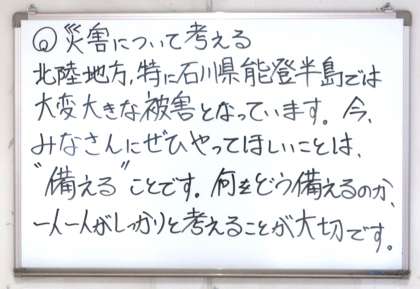 ◎災害について考える
北陸地方,特に石川県能登半島では
大変大きな被害となっています。今、
みなさんにぜひやってほしいことは、
"備える"ことです。何をどう備えるのか、
一人一人がしっかりと考えることが大切です。